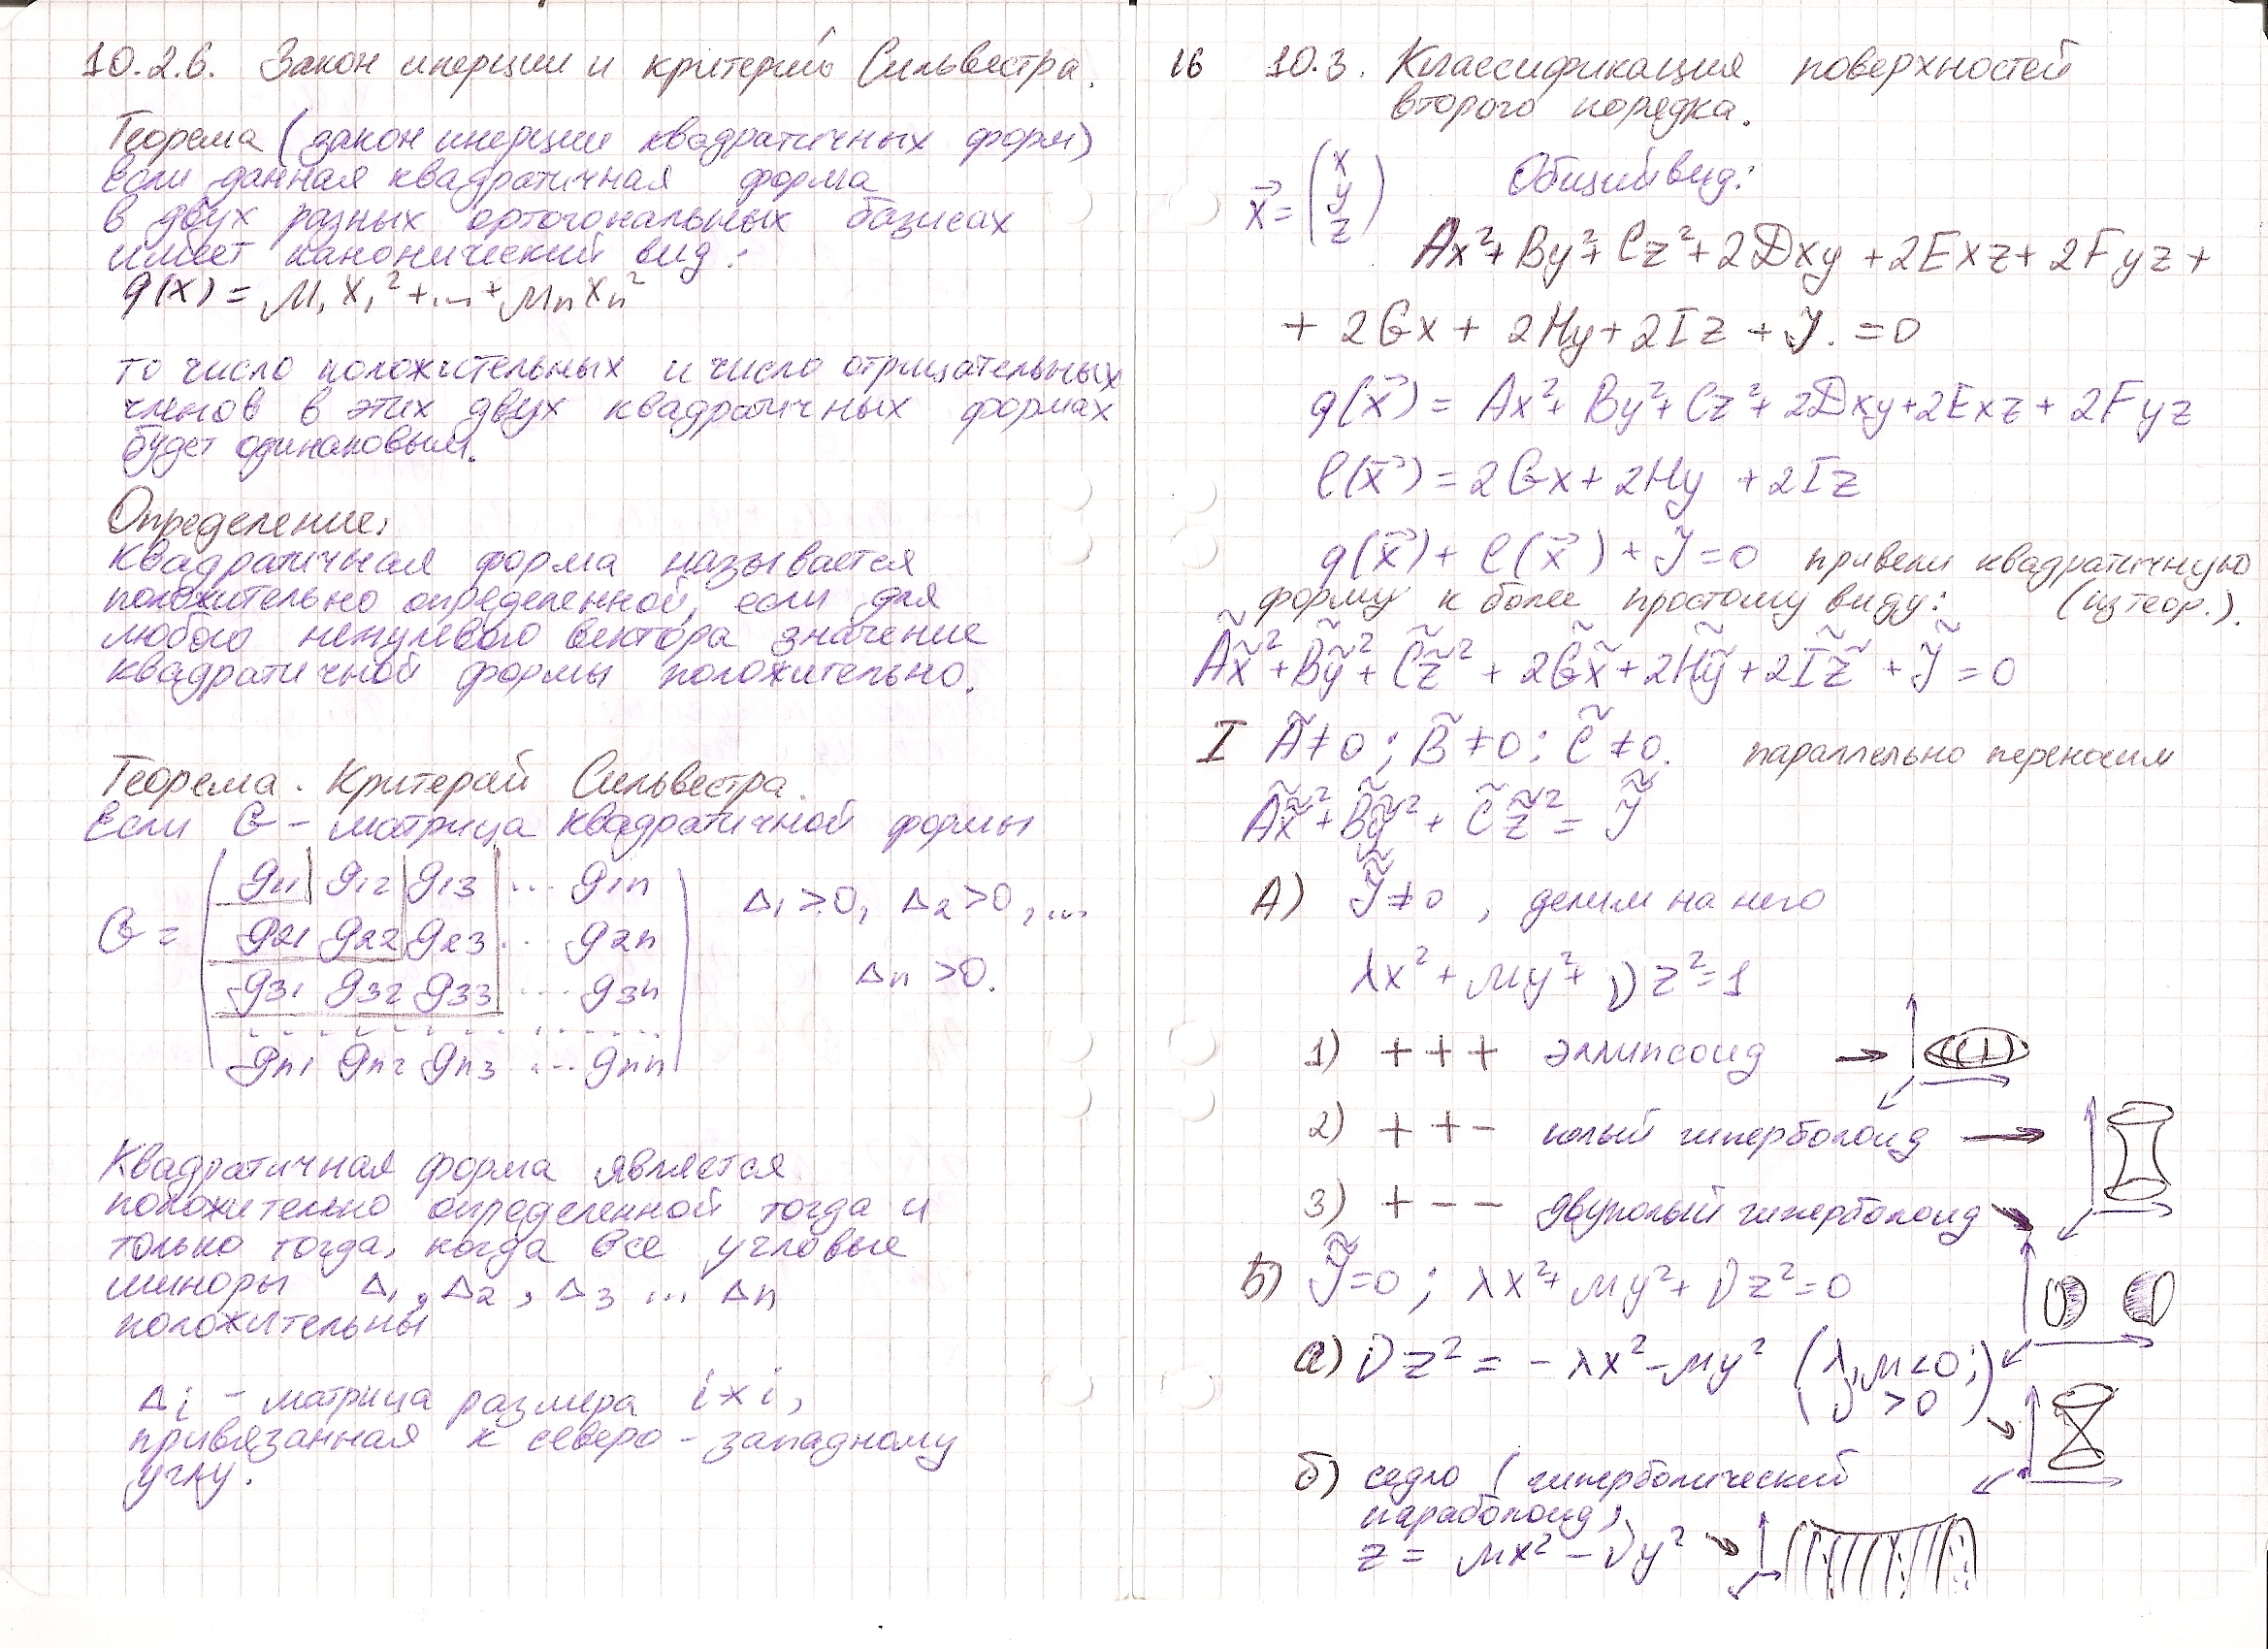 10.2.6. Закон инерции и критерий Сильвестра.
Теорема (закон инерции квадратичных форм)
Если данная квадратичная форма
в двух разных ортогональных базисах
имеет канонический вид:
g(x) = μ₁x₁² + ... + μₙxₙ²
то число положительных и число отрицательных
членов в этих двух квадратичных формах
будет одинаковым.
Определение:
Квадратичная форма называется
положительно определенной, если для
любого ненулевого вектора значение
квадратичной формы положительно.
Теорема. Критерай Сильвестра.
Если G - матрица квадратичной формы
G = ( g₁₁ g₁₂ g₁₃ ... g₁ₙ
g₂₁ g₂₂ g₂₃ ... g₂ₙ
g₃₁ g₃₂ g₃₃ ... g₃ₙ
. . . . . . . . . . . .
gₙ₁ gₙ₂ gₙ₃ ... gₙₙ )
Δ₁ > 0, Δ₂ > 0, ...
Δₙ > 0.
Квадратичная форма является
положительно определенной тогда и
только тогда, когда все угловые
миноры Δ₁, Δ₂, Δ₃ ... Δₙ
положительны
Δi - матрица размера i × i,
привязанная к северо-западному
углу.
16 10.3. Классификация поверхностей
второго порядка.
x⃗ = (x y z) Общий вид:
Ax² + By² + Cz² + 2Dxy + 2Exz + 2Fyz +
+ 2Gx + 2Hy + 2Iz + J. = 0
g(x⃗) = Ax² + By² + Cz² + 2Dxy + 2Exz + 2Fyz
l(x⃗) = 2Gx + 2Hy + 2Iz
g(x⃗) + l(x⃗) + J = 0 привели квадратичную
форму к более простому виду: (из теор.).
Ãx̃² + B̃ỹ² + C̃z̃² + 2G̃x̃ + 2H̃ỹ + 2Ĩz̃ + J̃ = 0
I Ã ≠ 0; B̃ ≠ 0; C̃ ≠ 0. параллельно переносим
Ãx̃̃² + B̃ỹ̃² + C̃z̃̃² = J̃̃
А) J̃̃ ≠ 0, делим на него
λx² + μy² + νz² = 1
1) + + + эллипсоид →
2) + + - полый гиперболоид →
3) + - - двуполый гиперболоид →
Б) J̃̃ = 0; λx² + μy² + νz² = 0
а) νz² = -λx² - μy² (λ, μ < 0; ν > 0) →
б) седло (гиперболический
параболоид)
z = μx² - νy² →